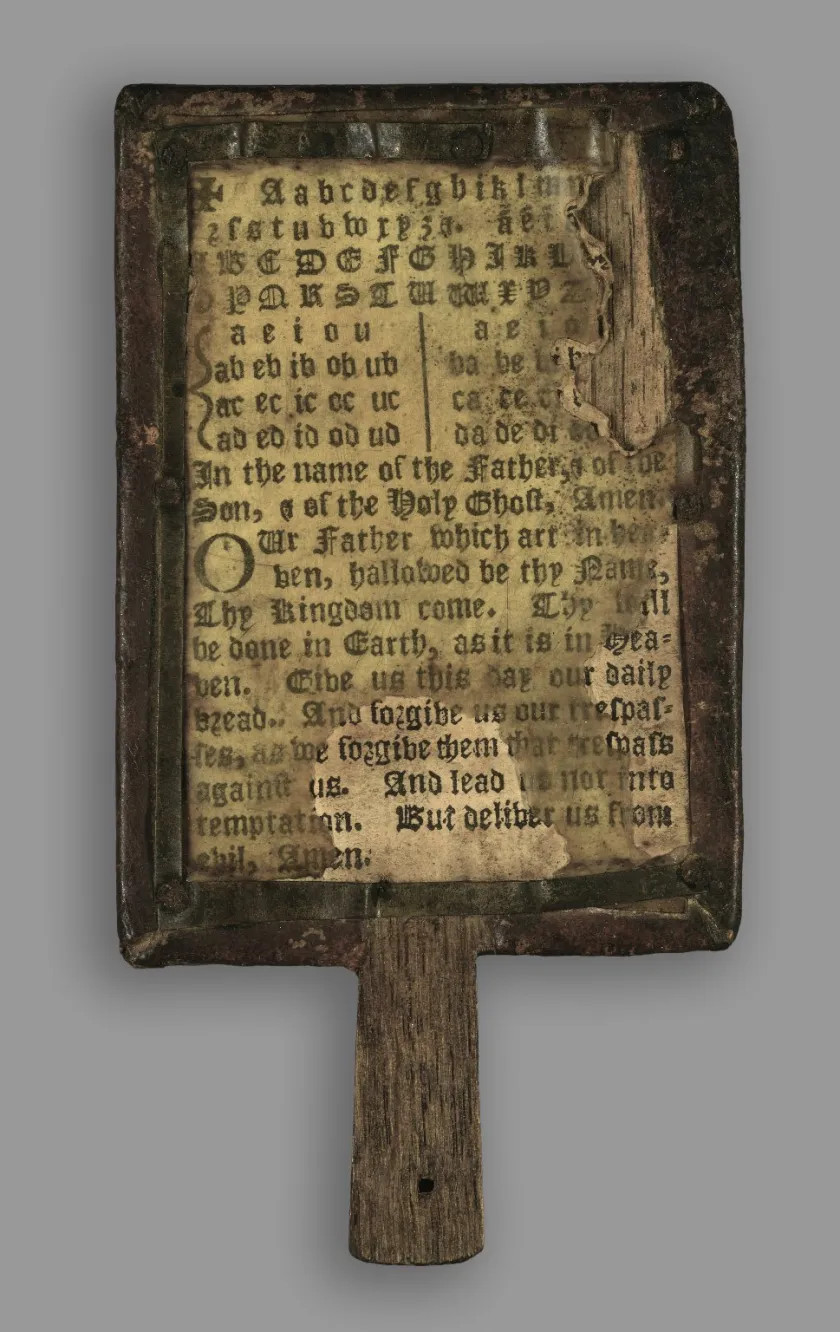 ✠ A a b c d e f g h i k l m n
ꝛ ſ s t u v w x y z &. ã ẽ i
B C D E F G H I K L
P Q R S T U W X Y Z
a e i o u | a e i o
ab eb ib ob ub | ba be bi
ac ec ic oc uc | ca ce ci
ad ed id od ud | da de di do
In the name of the Father, & of the
Son, & of the Holy Ghoſt, Amen.
OUr Father which art in hea-
ven, hallowed be thy Name,
Thy Kingdom come. Thy will
be done in Earth, as it is in Hea-
ven. Give us this day our daily
bꝛead. And foꝛgive us our treſpaſ-
ſes, as we foꝛgive them that treſpaſs
againſt us. And lead us not into
temptation. But deliver us from
evil, Amen.